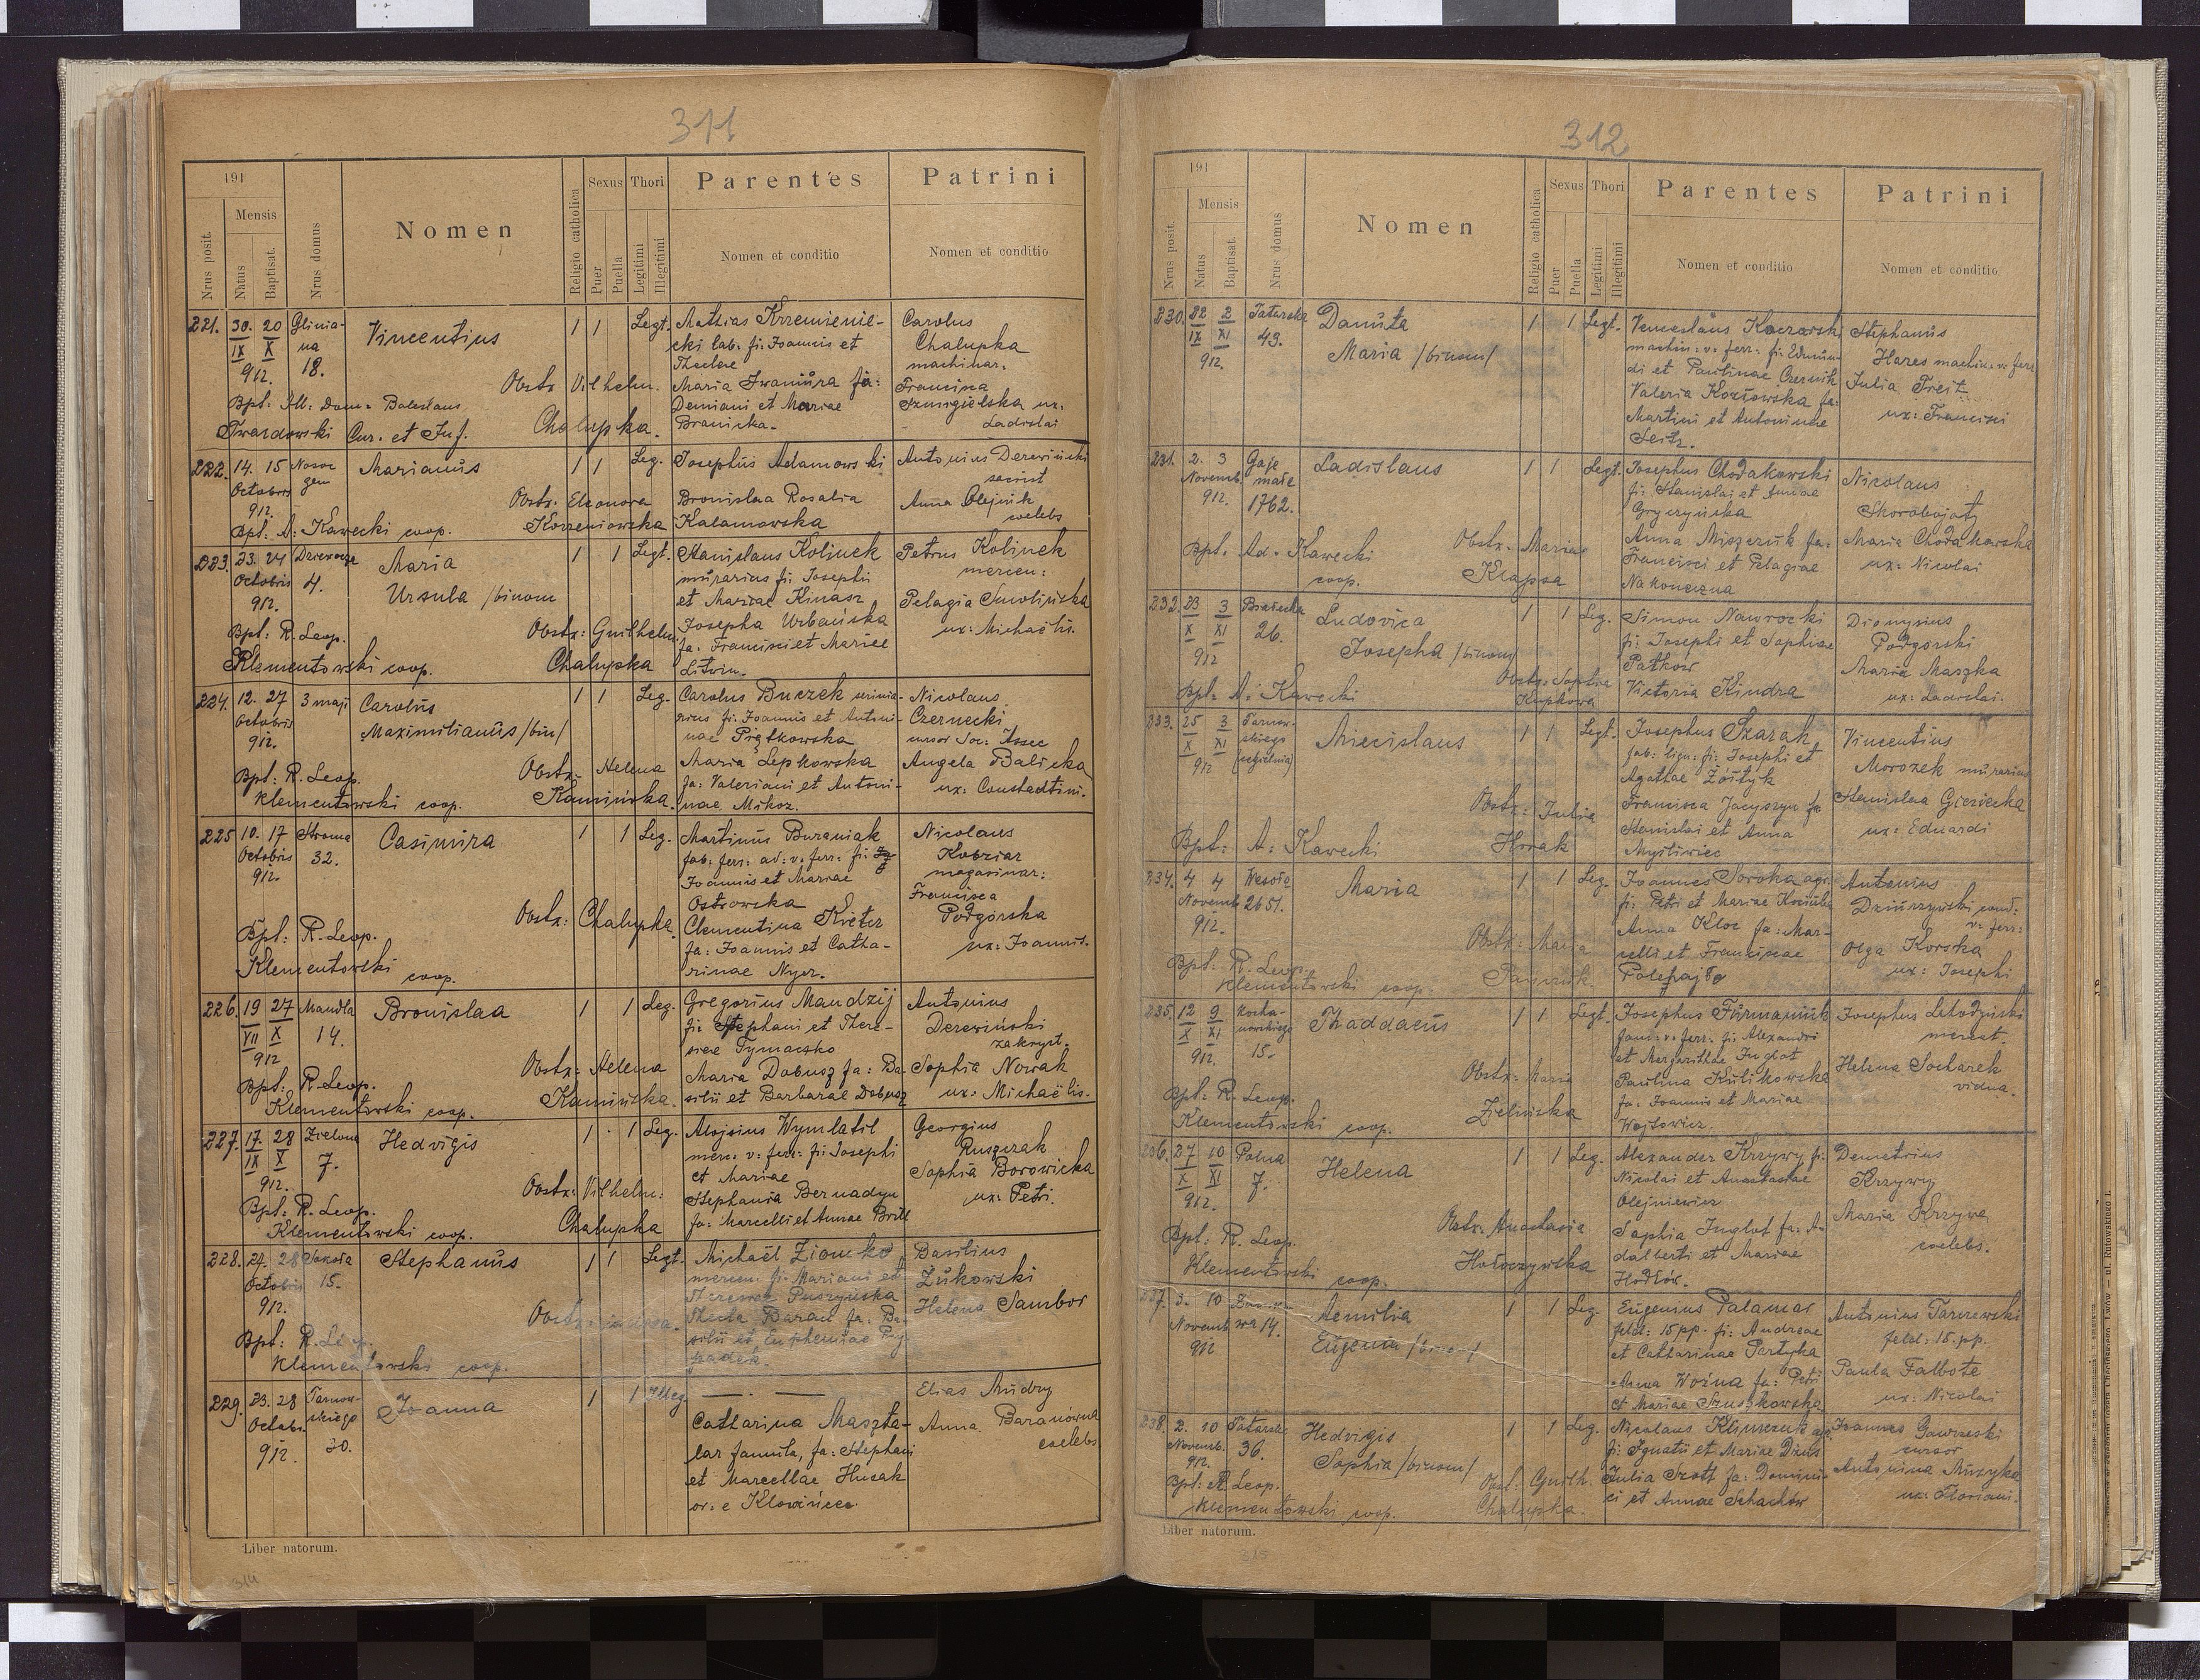 311
191
Nrus posit.
Mensis
Natus
Baptisat.
Nrus domus
Nomen
Religio catholica
Sexus
Puer
Puella
Thori
Legitimi
Illegitimi
Parentes
Nomen et conditio
Patrini
Nomen et conditio
221. 30. 20 Glinia- Vincentius 1 1 Legt. Mathias Krzemienie- Carolus
IX X na cki lab. fi: Joannis et Chalupka
912. 18. Theclae machinar.
Obstx Vilhelm. Maria Iwaniura fa: Francisca
Bpt: Ill: Dom: Boleslaus Demiani et Mariae Szmigielska ux.
Twardowski Cur. et Inf. Chalupka. Branicka. Ladislai
222. 14. 15 Marianus 1 1 Leg. Josephus Adamowski Antonius Derewiński
Octobris sacrist
912. Obstx. Eleonora Bronislaa Rosalia Anna Olejnik
Bpt. A: Kawecki coop. Korzeniowska Kalamowska coelebs
223. 23. 24 Maria 1 1 Legt. Stanislaus Kolinek Petrus Kolinek
Octobris 4. murarius fi: Josephi mercen:
912. Ursula /binom et Mariae Kinasz Pelagia Smolińska
Bpt: R. Leop. Obstx: Guilhelm. Josepha Urbańska ux: Michaëlis.
Klementowski coop. Chalupka fa. Francisci et Mariae
Litwin.
224. 12. 27 3 maji Carolus 1 1 Leg. Carolus Buczek Nicolaus
Octobris fi. Joannis et Antoni- Czernecki
912. Maximilianus /bin/ nae Piątkowska cursor Soc: Assec
Bpt: R. Leop. Obstx. Helena Maria Lepkowska Angela Balicka
Klementowski coop. Kamińska. fa: Valeriani et Antoni- ux: Constantini.
nae Mikoz.
225 10. 17 Stroma Casimira 1 1 Leg. Martinus Buraniak Nicolaus
Octobris 32. fab: ferr: ad: v. ferr: fi: Kobziar
912. Joannis et Mariae magasinar:
Ostrowska Francisca
Obstx: Chalupka. Clementina Kreter Podgórska
Bpt: R. Leop. fa: Joannis et Catha- ux: Joannis.
Klementowski coop. rinae Nyer.
226. 19 27 Mandla Bronislaa 1 1 Leg. Gregorius Mandzij Antonius
VII X 14. fi: Stephani et There- Derewiński
912 siae Tymaczko zakryst.
Obstx: Helena Maria Dobusz fa: Ba- Sophia Nowak
Bpt: R. Leop. Kamińska. silii et Barbarae Dobusz ux: Michaëlis.
Klementowski coop.
227. 17. 28 Zielona Hedvigis 1 1 Leg. Alojsius Wymlatil Georgius
IX X 7. merc: v: ferr: fi: Josephi Ruszczak
912. et Mariae Sophia Borowicka
Obstx: Vilhelm: Stephania Bernadyn ux: Petri.
Bpt: R. Leop. Chalupka fa: Marcelli et Annae Brill
Klementowski coop.
228. 27. 28 Sokoła Stephanus 1 1 Legt. Michaël Ziomko Basilius
Octobris 15. mercen. fi: Mariani et Żukowski
912. Puszyńska Helena Sambor
Obstx: Thecla Baran fa: Ba-
Bpt: R. Leop. silii et Euphemiae
Klementowski coop.
229. 23. 28 Tarnow- Joanna 1 1 Illeg — . — Elias Mudry
Octobr. skiego Catharina Maszta- Anna Baranówna
912. 30. lar famula, fa: Stephani coelebs
et Marcellae Husak
or: e
Liber natorum.
314
312
191
Nrus posit.
Mensis
Natus
Baptisat.
Nrus domus
Nomen
Religio catholica
Sexus
Puer
Puella
Thori
Legitimi
Illegitimi
Parentes
Nomen et conditio
Patrini
Nomen et conditio
230. 22 2 Tatarska Danuta 1 1 Legt. Venceslaus Kaczorowski Stephanus
IX XI 43. Maria /binom/ machin: v: ferr: fi: Edmun- Hares machin. v: ferr
912. di et Paulinae Czernik Julia Freit
Valeria Kozłowska fa: ux: Francisci
Martini et Antoninae
Seitz.
231. 2. 3 Gaje Ladislaus 1 1 Legt. Josephus Chodakowski Nicolaus
Novemb. małe fi: Stanislai et Annae Skorobojaty
912. 1762. Gryczyńska
Bpt. Ad. Kawecki Obstx. Mariae Anna Miszczuk fa: Maria Chodakowska
coop. Klapsa Francisci et Pelagiae ux: Nicolai
Nakoneczna
232. 23 3 Ludovica 1 1 Leg. Simon Nawrocki Dionysius
X XI 26. fi: Josephi et Sophiae Podgórski
912 Josepha /binom/ Patkow Maria Maszka
Bpt. A: Kawecki Obstx: Sophia Victoria Kindra ux: Ladislai.
Kupkowa
233. 25 3 Tarnow- Miecislaus 1 1 Legt. Josephus Szarak Vincentius
X XI skiego fab: lign: fi: Josephi et Morozek murarius
912 (cegielnia) Agathae Żółtyk
Obstx: Julia Francisca Jacyszyn fa Stanislaa
Stanislai et Anna ux: Eduardi
Bpt: A: Kawecki Hnak Myśliwiec
234. 4 4 Wesoła Maria 1 1 Leg. Joannes Soroka agr. Antonius
Novemb 2651. fi: Petri et Mariae cond:
912. Anna Kloc fa: Mar- v. ferr:
Obstx: Maria celli et Franciscae Olga Korska
Bpt: R. Leop. ux: Josephi
Klementowski coop.
235. 12 9 Kocha- Thaddaeus 1 1 Legt. Josephus Furmaniuk Josephus
X XI nowskiego fam: v. ferr: fi: Alexandri
912. 15. et Margarithae Inglot Helena Socharek
Obstx: Maria Paulina Kulikowska vidua.
Bpt: R. Leop. Zielińska fa: Joannis et Mariae
Klementowski coop. Wojtowicz.
236. 27 10 Polna Helena 1 1 Leg. Alexander Krzywy fi: Demetrius
X XI 7. Nicolai et Anastasiae Krzywy
912. Olejniewicz Maria Krzywa
Obstx: Anastasia Sophia Inglot fa: A- coelebs.
Bpt: R. Leop. dalberti et Mariae
Klementowski coop. Hołoczywska Hodłów.
237. 3. 10 Aemilia 1 1 Leg. Eugenius Palamar Antonius Tarczewski
Novemb wa 14. feld: 15 pp. fi: Andreae feld: 15. pp.
912 Eugenia /binom/ et Catharinae Partyka Paula Falbota
Anna Woźna fa: Petri ux: Nicolai
et Mariae Szuszkowska
238. 2. 10 Tatarska Hedvigis 1 1 Leg. Nicolaus Klimczuk agr. Joannes Gawroński
Novemb. 36. fi: Ignatii et Mariae cursor
912. Sophia /binom/ Obst: Guilh. Julia Szott fa: Domini- Antonina Muzyka
Bpt: R. Leop. Chalupka. ci et Annae Schachów ux: Floriani.
Klementowski coop.
Liber natorum.
315